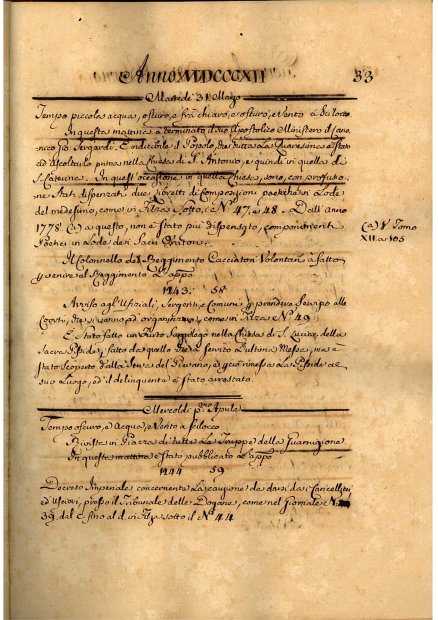 Anno MDCCCXII
33
Martedì 31 Marzo
Tempo piccola acqua, oscuro, e frà chiaro, e oscuro, e Vento a Scilocco
In questa mattina à terminato il suo Apostolico Ministero il Cano-
nico Sergardi. È indicibile il Popolo, che tutta la Quaresima è stato
ad ascoltarlo prima nella Chiesa di S. Antonio, e quindi in quella di
S. Caterina. In quest'occasione in quella Chiesa, sono, con profusio-
ne stati dispensati due libretti di Composizioni poetiche in Lode
del medesimo, come in Filza Sotto i Nⁱ 47, e 48. Dall'anno
1778 (a) a questo, non è stato più dispensato, componimenti
Poetici in Lode dei Sacri Oratori.
(a) V. Tomo
XII. a 105
Il Colonnello del Reggimento Cacciatori Volontari à fatto
pervenire al Reggimento L'appº
1243. 58
Avviso agl'Uffiziali, Sergenti, e Comuni per prendere servizio alle
Coorti, che si vanno ad organizzare, come in Filza Nº 49
È Stato fatto un Furto Sagrilego nella Chiesa di S. Lucia, della
Sacra Pisside, fatto da quello che à servito l'ultima Messa, ma è
stato scoperto dalla Serva del Piovano, e quì rimessa La Pisside al
suo Luogo, ed il delinquente è stato arrestato.
Mercoldì pº Aprile
Tempo oscuro, e Acqua, e Vento a Scilocco
Rivista in Piazza di tutta La Truppa della Guarnigione.
In questa mattina è stato pubblicato L'appº
1244 59
Decreto Imperiale concernente La cauzione da darsi da i Cancellieri
ed Uscieri, presso il Tribunale delle Dogane, come nel Giornale Nº
39. dal c. fino al d. in Filza sotto il Nº 44